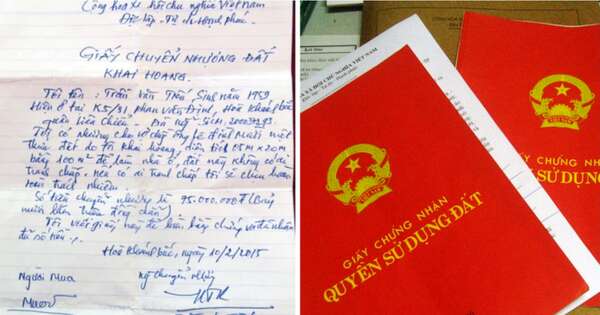 Cộng hòa xã hội chủ nghĩa Việt Nam
Độc lập - Tự do - Hạnh phúc.
GIẤY CHUYỂN NHƯỢNG ĐẤT
KHAI HOANG.
Tôi tên: Trần Văn Tiến, Sinh năm 1959
Hiện ở tại K5/31, Phan Văn Định, Hoà Khánh bắc
quận Liên Chiểu - Đà nẵng
Tôi có nhường cho vợ chồng Lê Đình Mười một
thửa đất do tôi khai hoang, diện tích 05m x 20m
bằng 100m² để làm nhà ở, đất này không có ai
tranh chấp, nếu có ai tranh chấp tôi sẽ chịu hoàn
toàn trách nhiệm.
Số tiền chuyển nhượng là 95.000.000đ
mươi lăm triệu đồng chẵn)
Tôi viết giấy này để làm bằng chứng và đã nhận
đủ số tiền.
Hoà Khánh bắc, ngày 10/2/2015
Người Mua
Mười
CỘNG HÒA
XÃ HỘI CHỦ NGHĨA VIỆT NAM
GIẤY CHỨNG NHẬN
QUYỀN SỬ DỤNG ĐẤT
GIẤY CHỨNG NHẬN
SỬ DỤNG